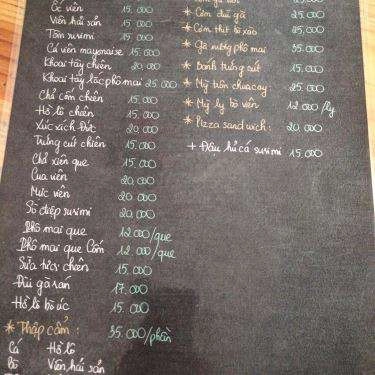 Ốc viên 15.000
Viên hải sản 15.000
Tôm surimi 15.000
Cá viên mayonaise 15.000
Khoai tây chiên 20.000
Khoai tây lắc phô mai 25.000
Chả cốm chiên 15.000
Hồ lô chiên 15.000
Xúc xích Đức 20.000
Trứng cút chiên 15.000
Chả xiên que 15.000
Cua viên 20.000
Mực viên 20.000
Sò điệp surimi 20.000
Phô mai que 12.000/que
Phô mai que Cốm 12.000/que
Sữa tươi chiên 15.000
Đùi gà rán 17.000
Hồ lô bò úc 15.000
* Thập cẩm: 35.000/phần
Cá Hồ lô
Bò Viên hải sản
* Cơm đùi gà 25.000
* Cơm thịt bò xào 25.000
* Gà nướng phô mai 35.000
* Bánh trứng cút 15.000
* Mỳ trộn chua cay 25.000
* Mỳ ly bò viên 12.000/ly
* Pizza sandwich: 20.000
+ Đậu hủ cá surimi 15.000